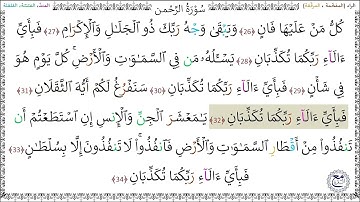 سُورَةُ الرَّحْمٰن
كُلُّ مَنْ عَلَيْهَا فَانٍ ﴿26﴾ وَيَبْقَىٰ وَجْهُ رَبِّكَ ذُو الْجَلَـٰلِ وَالْإِكْرَامِ ﴿27﴾ فَبِأَيِّ
ءَالَآءِ رَبِّكُمَا تُكَذِّبَانِ ﴿28﴾ يَسْـَٔلُهُۥ مَن فِي السَّمَـٰوَٰتِ وَالْأَرْضِ ۚ كُلَّ يَوْمٍ هُوَ
فِي شَأْنٍ ﴿29﴾ فَبِأَيِّ ءَالَآءِ رَبِّكُمَا تُكَذِّبَانِ ﴿30﴾ سَنَفْرُغُ لَكُمْ أَيُّهَ الثَّقَلَانِ ﴿31﴾
فَبِأَيِّ ءَالَآءِ رَبِّكُمَا تُكَذِّبَانِ ﴿32﴾ يَـٰمَعْشَرَ الْجِنِّ وَالْإِنسِ إِنِ اسْتَطَعْتُمْ أَن
تَنفُذُوا مِنْ أَقْطَارِ السَّمَـٰوَٰتِ وَالْأَرْضِ فَانفُذُوا ۚ لَا تَنفُذُونَ إِلَّا بِسُلْطَـٰنٍ ﴿33﴾
فَبِأَيِّ ءَالَآءِ رَبِّكُمَا تُكَذِّبَانِ ﴿34﴾